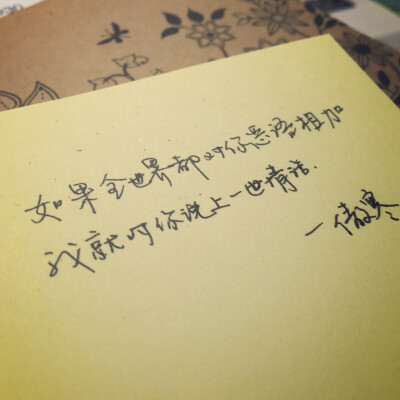 如果全世界都对你恶语相加
我就对你说上一世情话.
一傲寒